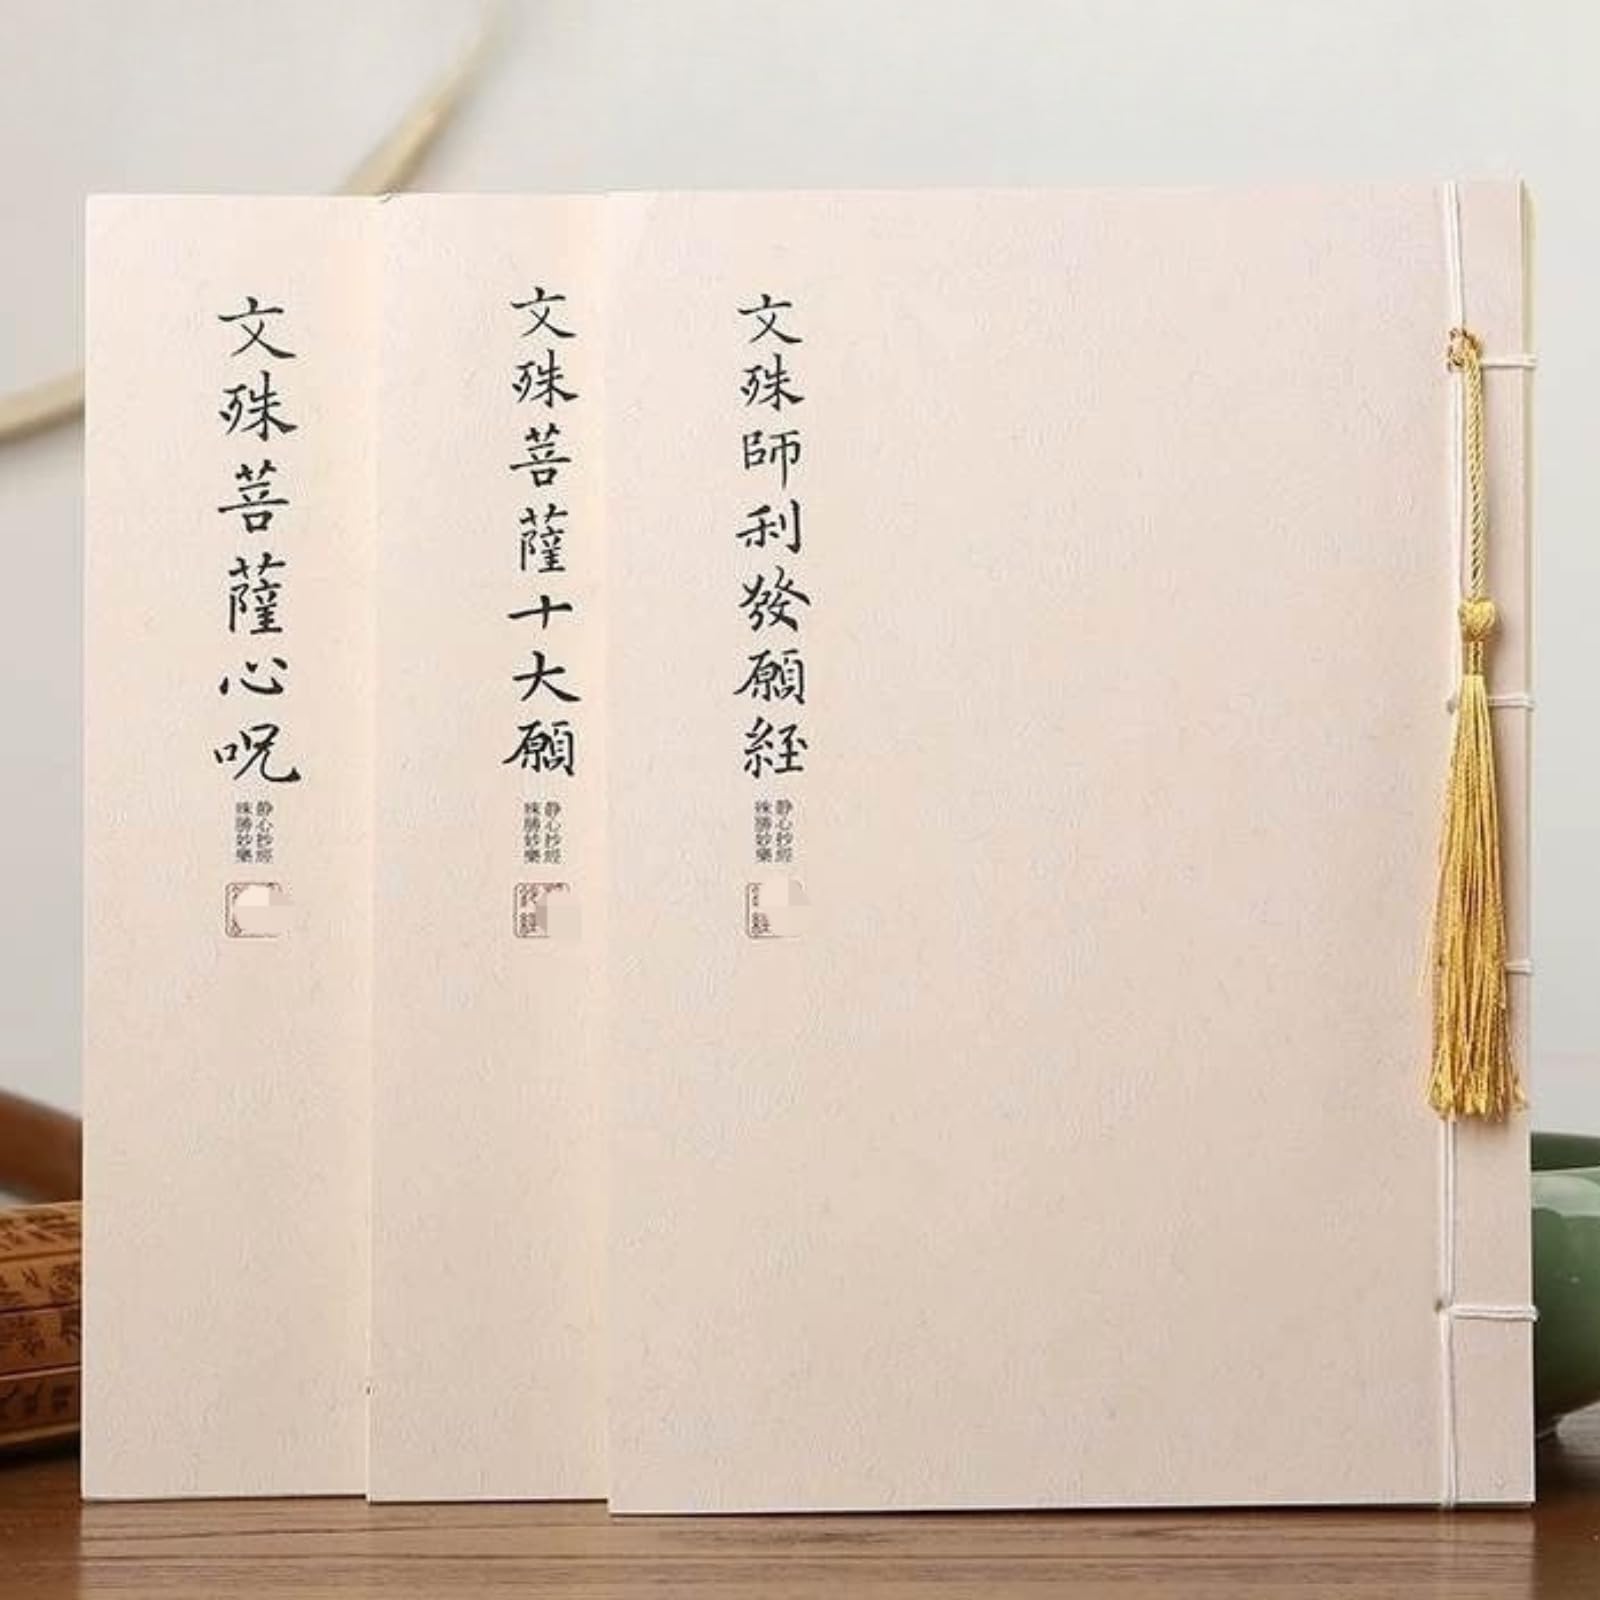 文殊菩薩心呪
静心抄經
殊勝妙樂
文殊菩薩十大願
静心抄經
殊勝妙樂
文殊師利發願経
静心抄經
殊勝妙樂